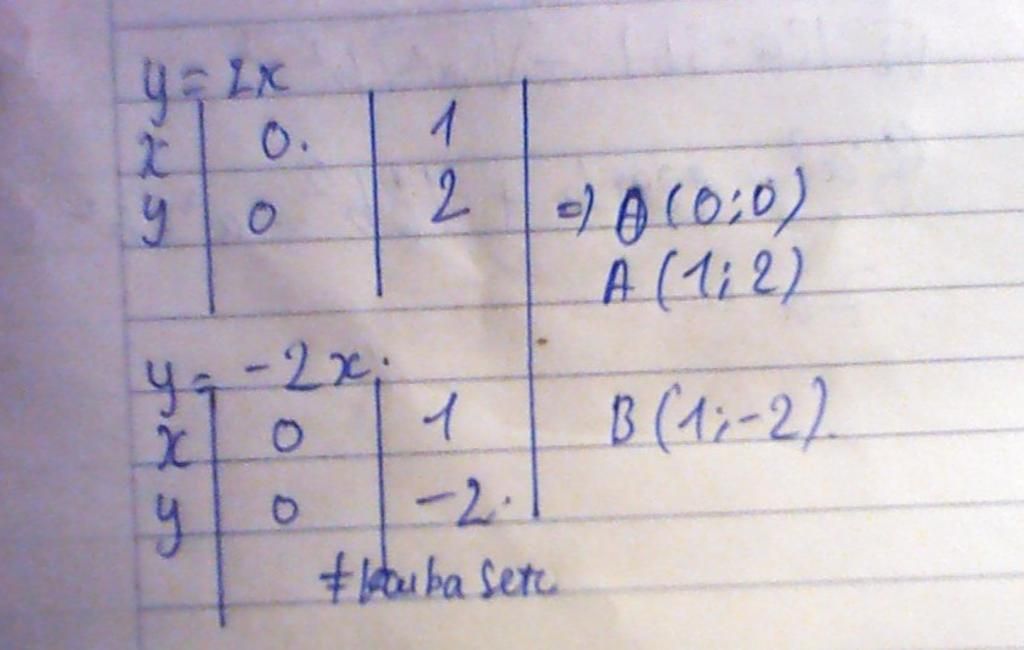 y = 2x
x 0. 1
y 0 2 => O(0;0)
A(1;2)
y = -2x.
x 0 1 B(1;-2).
y 0 -2.